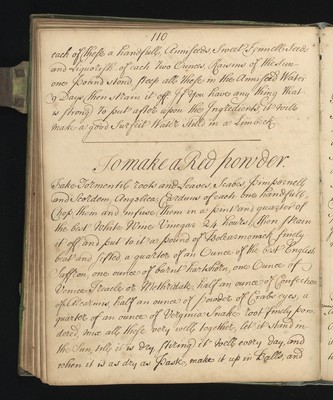 110
each of these a handfull, Anniseeds Sweet Fennell Seeds
and Liquorish of each two Ounces, Raisins of the Sun
one pound stoned, steep all these in the Anniseed Water
9 Days, then strain it off if you have any thing that
is strong to put after upon the Ingredients it will
make a good Surfeit Water Still'd in a Limbeck
To make a Red powder
Take Tormentil roots and Leaves, Scabes Pimparnell
and Scordem, Angelica, Carduus of each one handfull
Chop them and infuse them in a pint and quarter of
the best White Wine Vinegar 24 hours, then strain
it off and put to it a pound of Bolearmonack finely
beat and sifted, a quarter of an Ounce of the best English
Saffron, one ounce of burnt hartshorn, one Ounce of
Venice Treacle or Methridate, half an ounce of Confection
of Alcarmus, half an ounce of powder of Crabs eyes, a
quarter of an ounce of Verginia Snake root finely pow
dered, mix all these very well together, let it stand in
the Sun, till it is dry, stirring it well every day, and
when it is as dry as Past, make it up in Balls, and